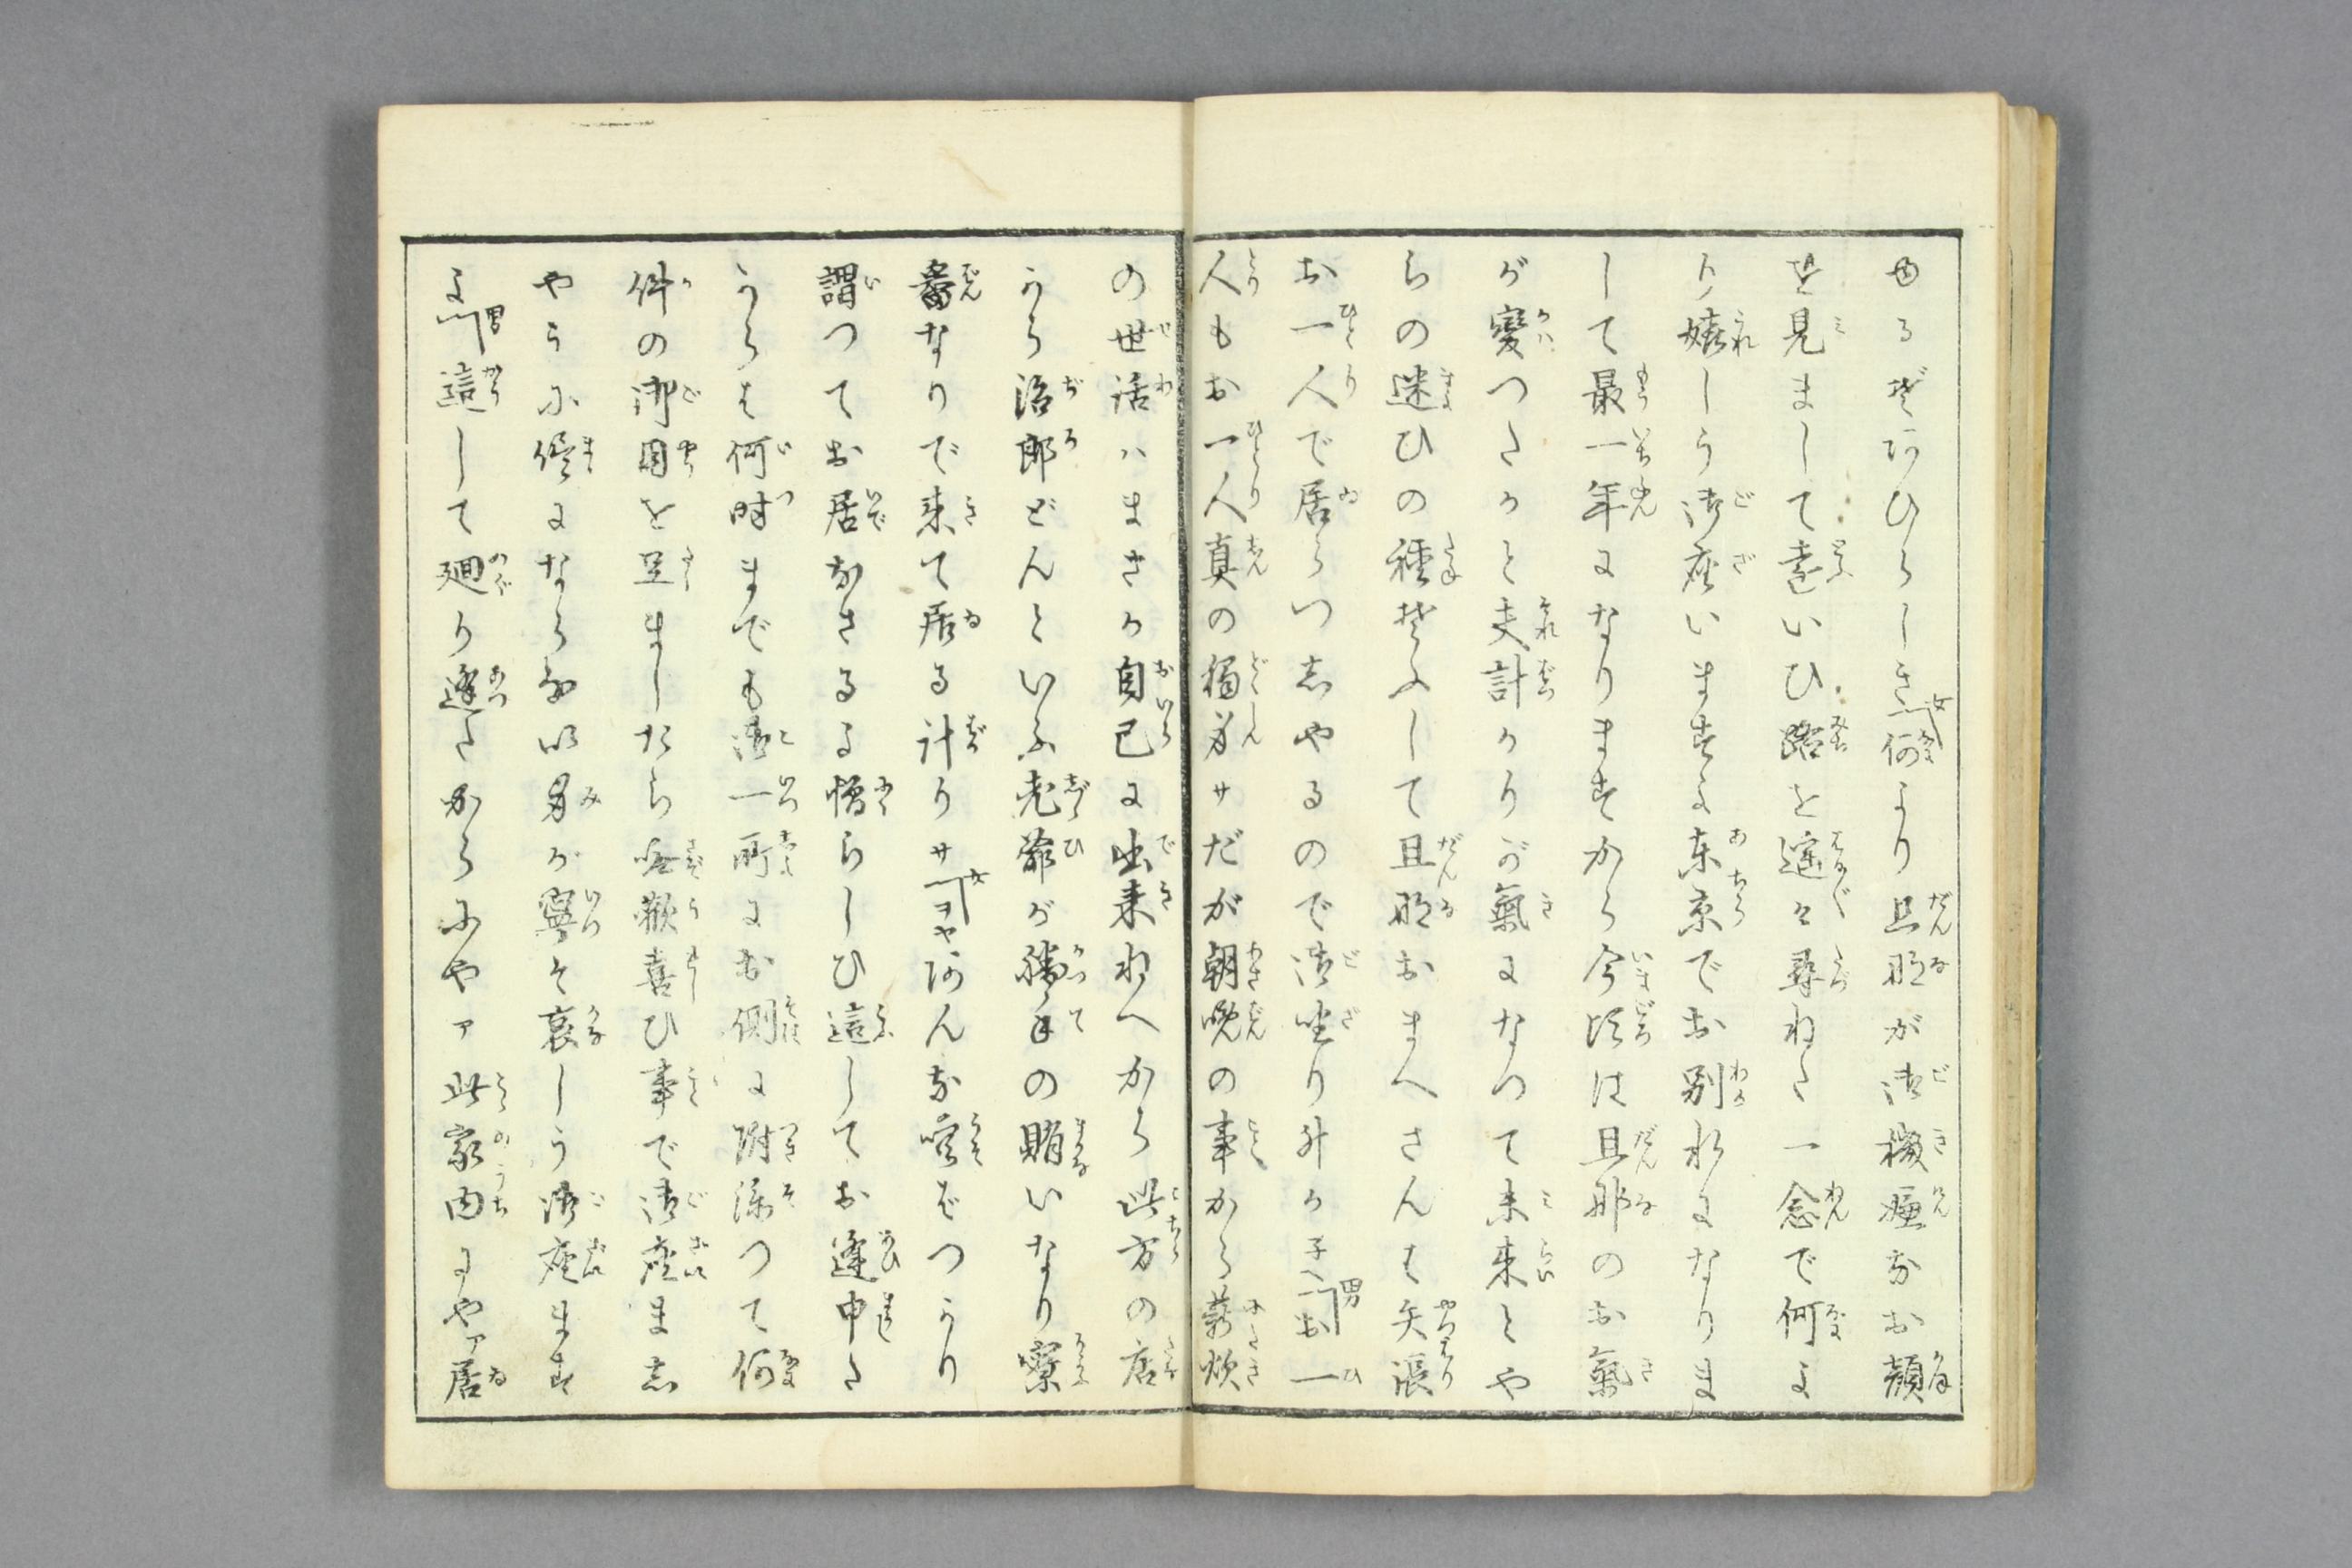 ゆるぞアひらしき 女「何より旦那が御機嫌なお顔
を見まして遠いひ路を遥々尋ねた一念で何よ
り嬉しう御座いますよ東京でお別れになりま
して最一年になりますから今頃は旦那のお氣
が変つたかと夫計かりが氣になつて未来とや
らの迷ひの種蒔ふして旦那おまへさんも矢張
お一人で居らつしやるので御坐り升か子へ 男「お一
人もお一人真の獨身サだが朝晩の事から薪炊
の世話ハまさか自己に出来ねへから此方の店
から治郎どんといふ老爺が勝手の賄いなり寮
番なりで来て居る計りサ 女「ヲヤアんな嘘ばつかり
謂つてお居なさるよ憎らしひ這してお逢申た
からは何時までも御一所にお側に附添つて何
件の御用を足ましたら嘸歓喜ひ事で御座ませ
やうに侭にならない身が寧そ哀しう御座ます
よ 男「這して廻り逢たからにやア此家内にやア居